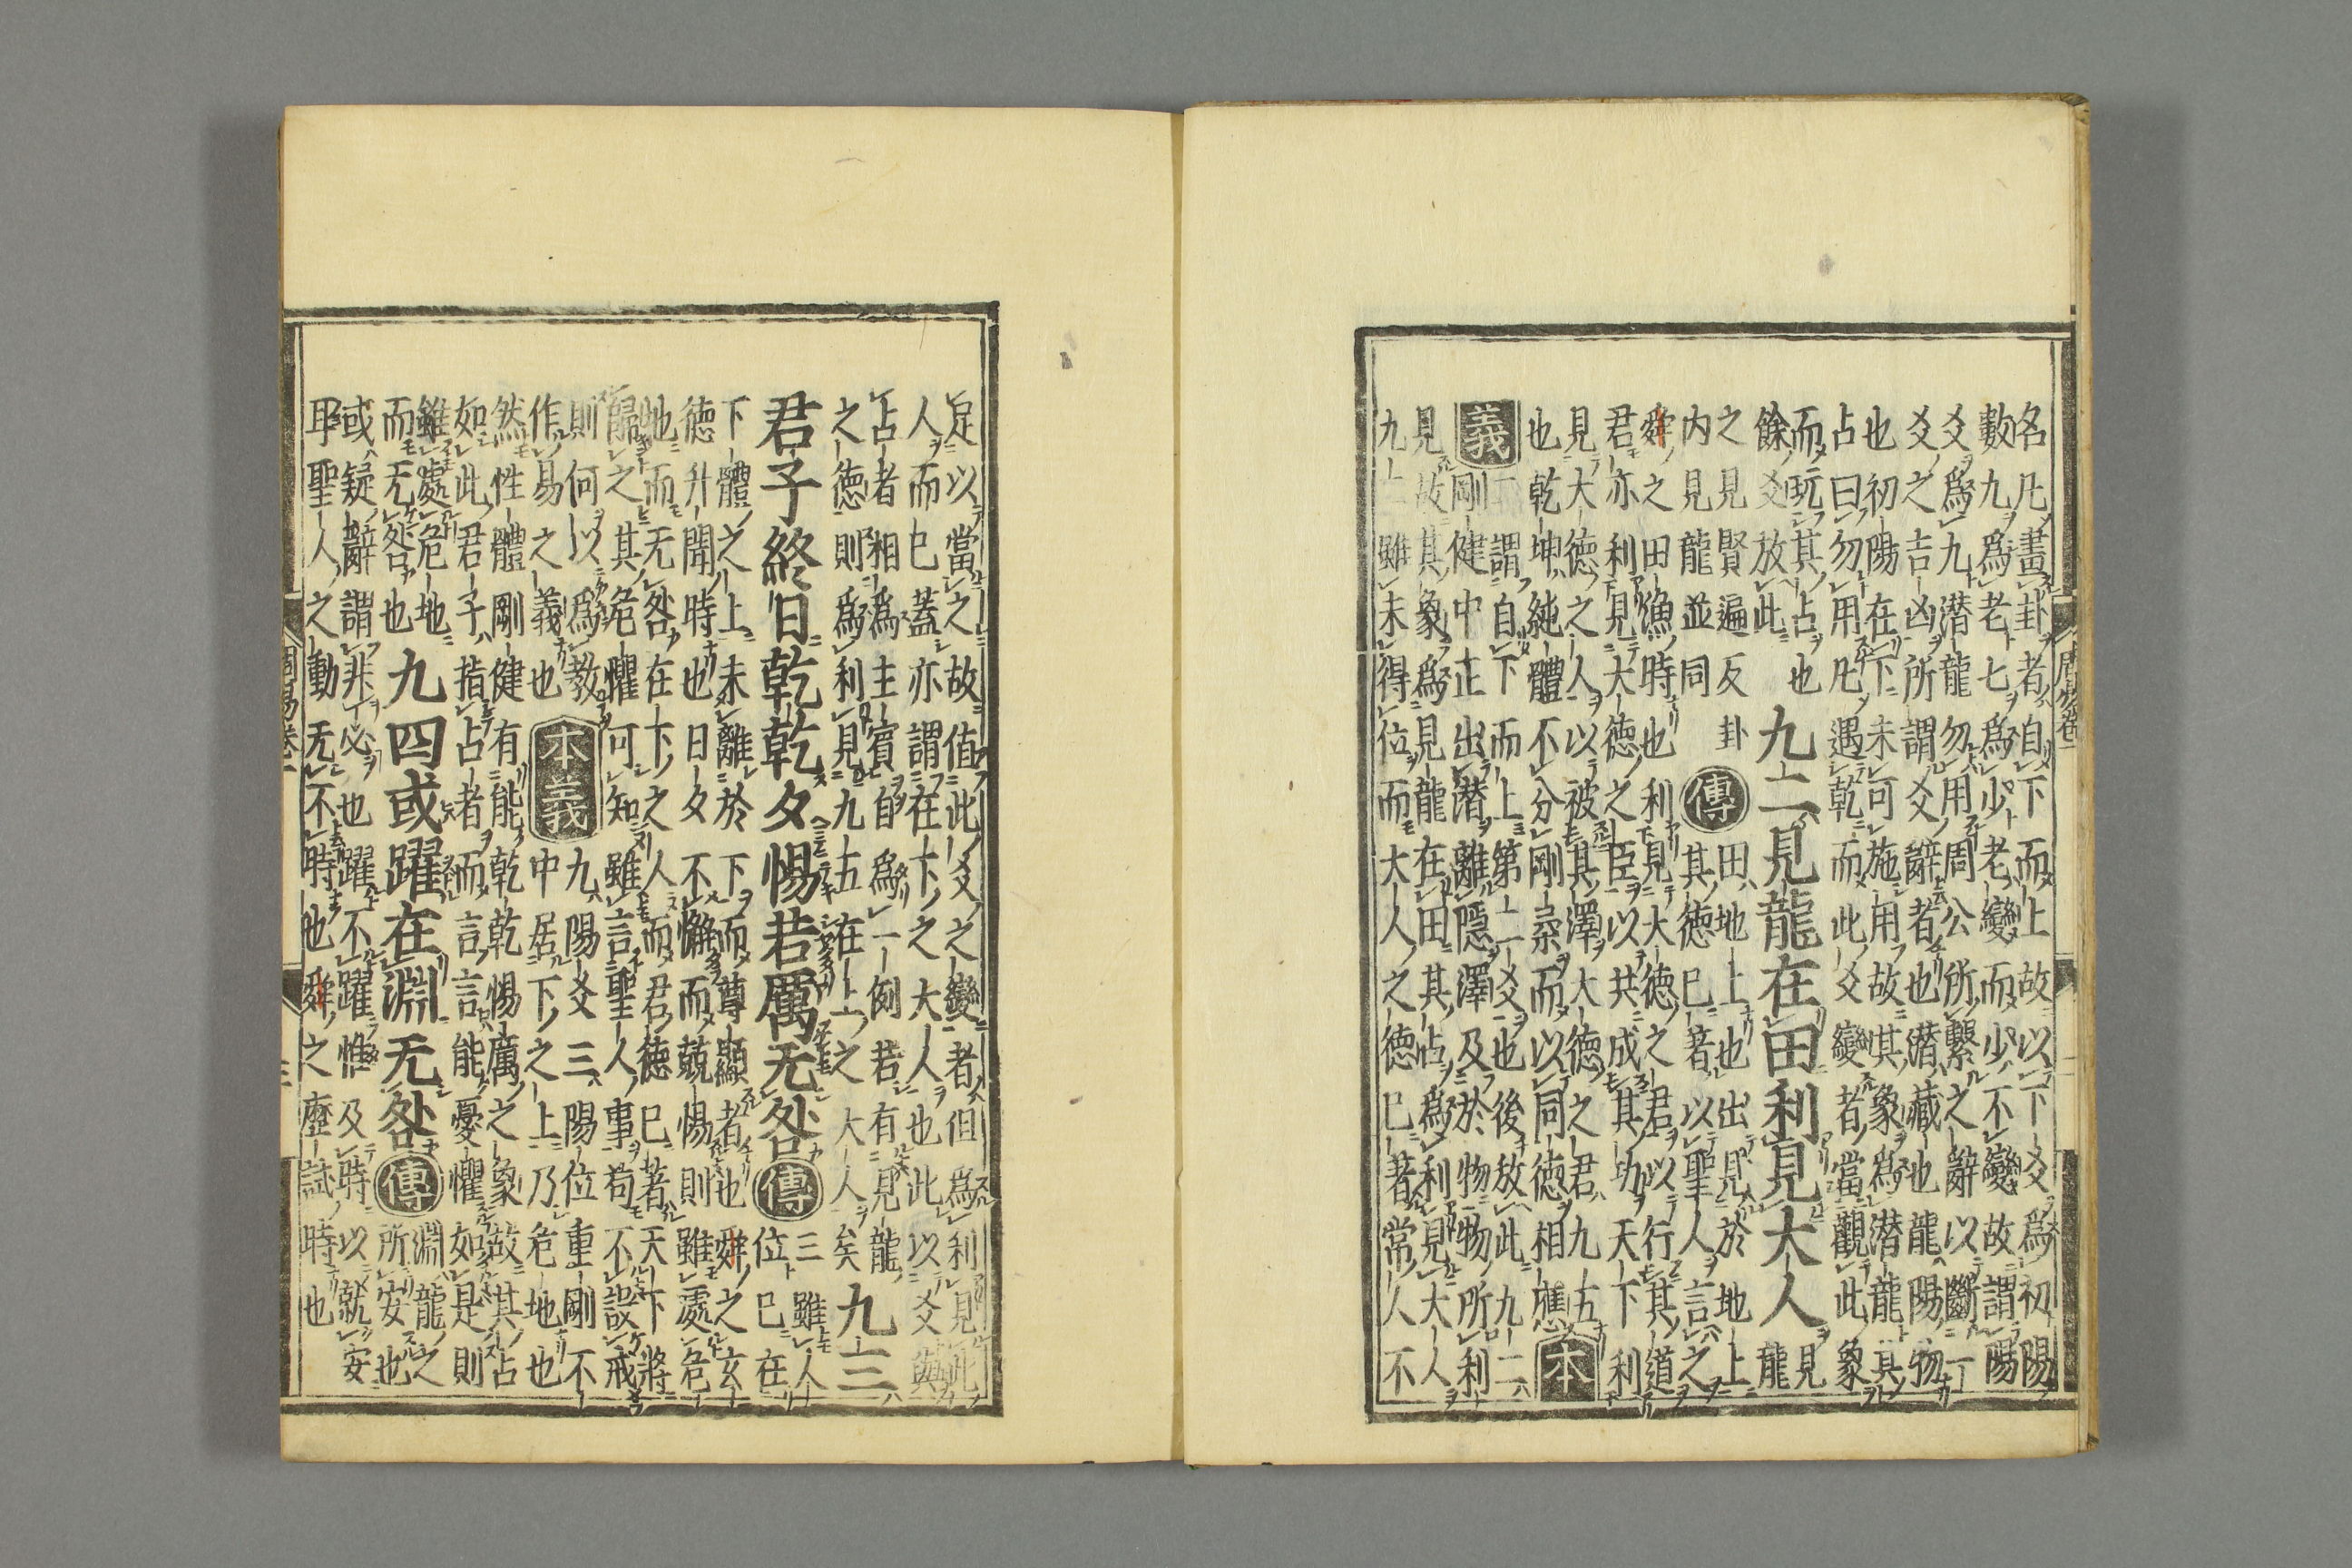 周易卷一
名凡畫卦者自下而上故以下爻爲初陽
數九爲老七爲少老變而少不變故謂陽
爻爲九潛龍勿用周公所繫之辭以斷一
爻之吉凶所謂爻辭者也潛藏也龍陽物
也初陽在下未可施用故其象爲潛龍其
占曰勿用凡遇乾而此爻變者當觀此象
而玩其占也
餘爻放此
九二見龍在田利見大人
見
龍
之見賢遍反卦
内見龍並同
傳
田地上也出見於地上
其德已著以聖人言之
舜之田漁時也利見大德之君以行其道
君亦利見大德之臣以共成其功天下利
見大德之人以被其澤大德之君九五
也乾坤純體不分剛柔而以同德相應
本
義
二謂自下而上第二爻也後放此九二
剛健中正出潛離隱澤及於物物所利
見故其象爲見龍在田其占爲利見大人
九二雖未得位而大人之德已著常人不
足以當之故值此爻之變者但爲利見此
人而已蓋亦謂在下之大人也此以爻與
占者相爲主賓自爲一例若有見龍
之德則爲利見九五在上之大人矣
九三
君子終日乾乾夕惕若厲无咎
傳
三雖人
位已在
下體之上未離於下而尊顯者也舜之玄
德升聞時也日夕不懈而兢惕則雖處危
地而无咎在下之人而君德已著天下將
歸之其危懼可知雖言聖人事苟不設戒
則何以爲教
作易之義也
本義
九陽爻三陽位重剛不
中居下之上乃危地也
然性體剛健有能乾乾惕厲之象故其占
如此君子指占者而言言能憂懼如是則
雖處危地
而无咎也
九四或躍在淵无咎
傳
淵龍之
所安也
或疑辭謂非必也躍不躍惟及時以就安
耳聖人之動无不時也舜之歷試時也
周易卷一
三